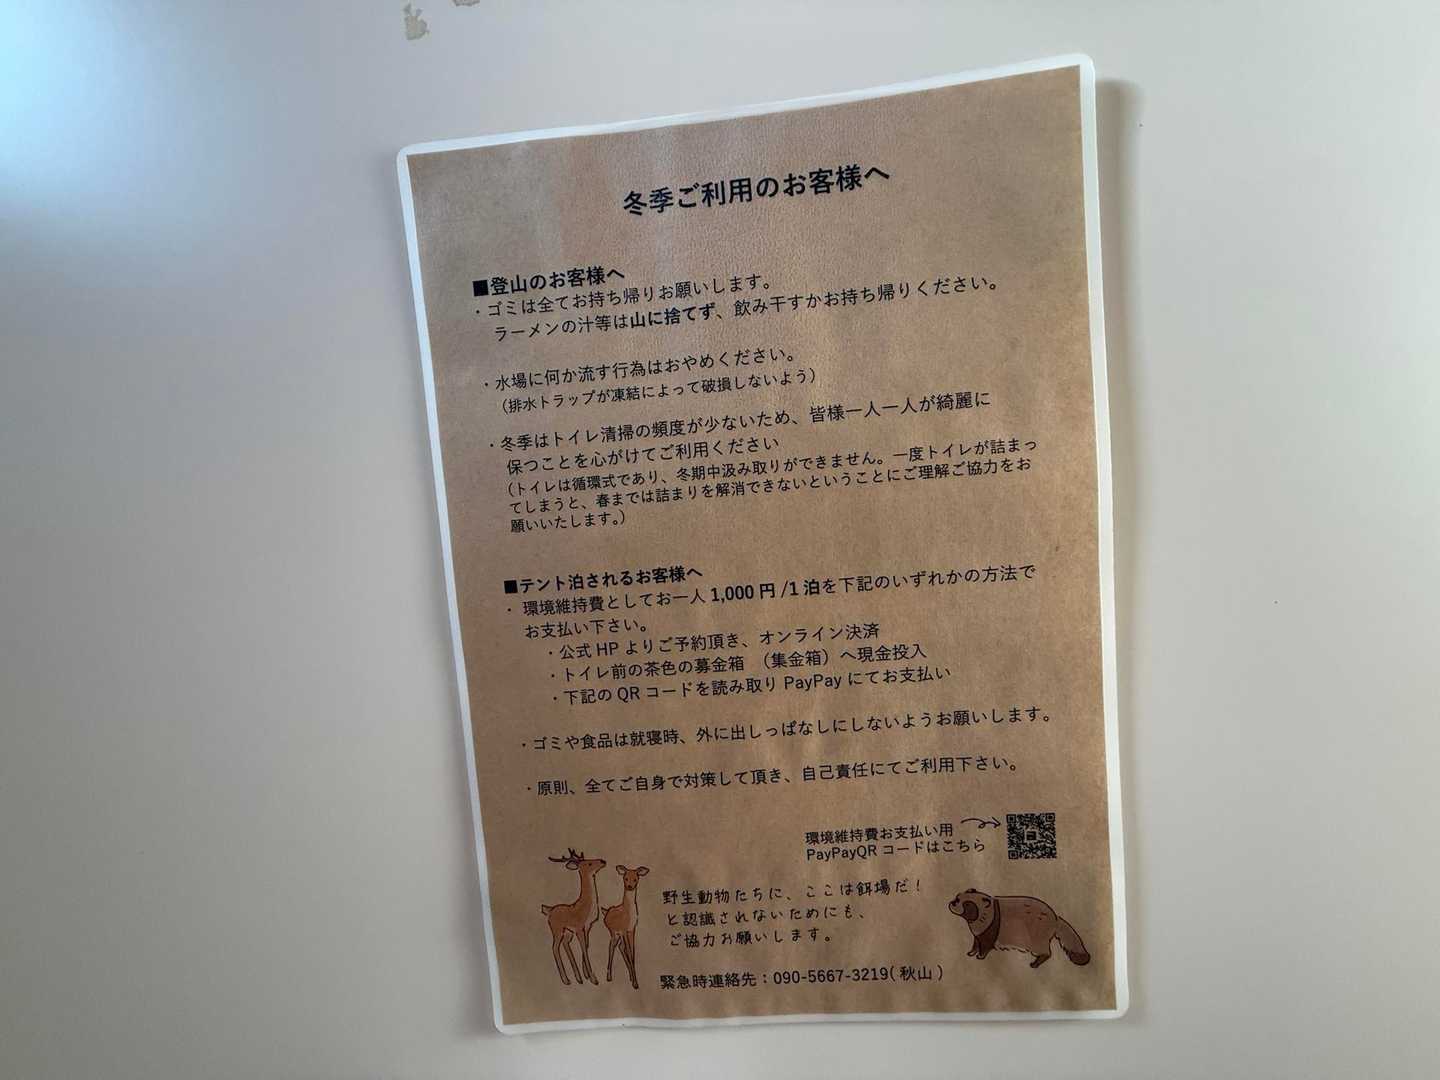 冬季ご利用のお客様へ
■登山のお客様へ
・ゴミは全てお持ち帰りお願いします。
ラーメンの汁等は山に捨てず、飲み干すかお持ち帰りください。
・水場に何か流す行為はおやめください。
（排水トラップが凍結によって破損しないよう）
・冬季はトイレ清掃の頻度が少ないため、皆様一人一人が綺麗に
保つことを心がけてご利用ください
（トイレは循環式であり、冬期中汲み取りができません。一度トイレが詰まっ
てしまうと、春までは詰まりを解消できないということにご理解ご協力をお
願いいたします。）
■テント泊されるお客様へ
・環境維持費としてお一人 1,000 円 /1 泊を下記のいずれかの方法で
お支払い下さい。
・公式 HP よりご予約頂き、オンライン決済
・トイレ前の茶色の募金箱 （集金箱）へ現金投入
・下記の QR コードを読み取り PayPay にてお支払い
・ゴミや食品は就寝時、外に出しっぱなしにしないようお願いします。
・原則、全てご自身で対策して頂き、自己責任にてご利用下さい。
環境維持費お支払い用
PayPayQR コードはこちら
野生動物たちに、ここは餌場だ！
と認識されないためにも、
ご協力お願いします。
緊急時連絡先：090-5667-3219( 秋山 )